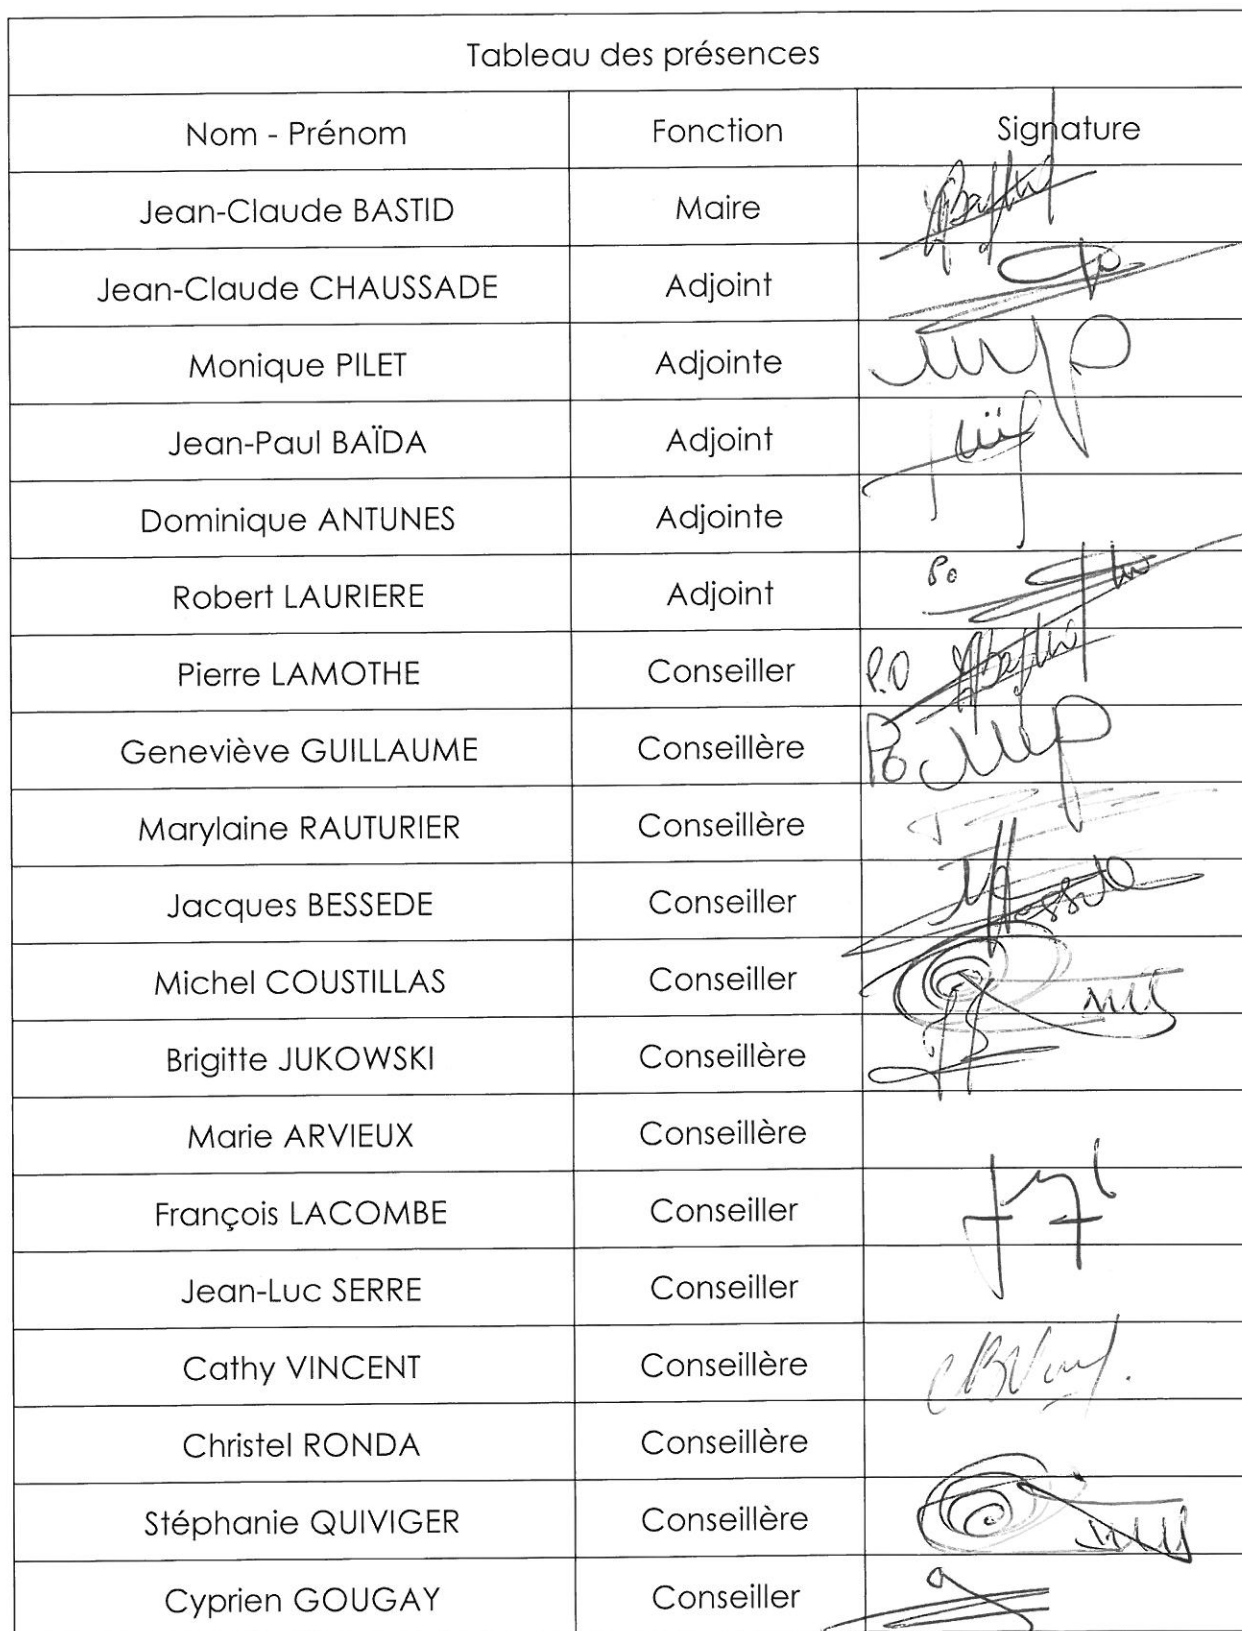 Tableau des présences
Nom - Prénom Fonction Signature
Jean-Claude BASTID Maire
Jean-Claude CHAUSSADE Adjoint
Monique PILET Adjointe
Jean-Paul BAÏDA Adjoint
Dominique ANTUNES Adjointe
Robert LAURIERE Adjoint Po
Pierre LAMOTHE Conseiller P.O
Geneviève GUILLAUME Conseillère Po
Marylaine RAUTURIER Conseillère
Jacques BESSEDE Conseiller
Michel COUSTILLAS Conseiller
Brigitte JUKOWSKI Conseillère
Marie ARVIEUX Conseillère
François LACOMBE Conseiller
Jean-Luc SERRE Conseiller
Cathy VINCENT Conseillère
Christel RONDA Conseillère
Stéphanie QUIVIGER Conseillère
Cyprien GOUGAY Conseiller